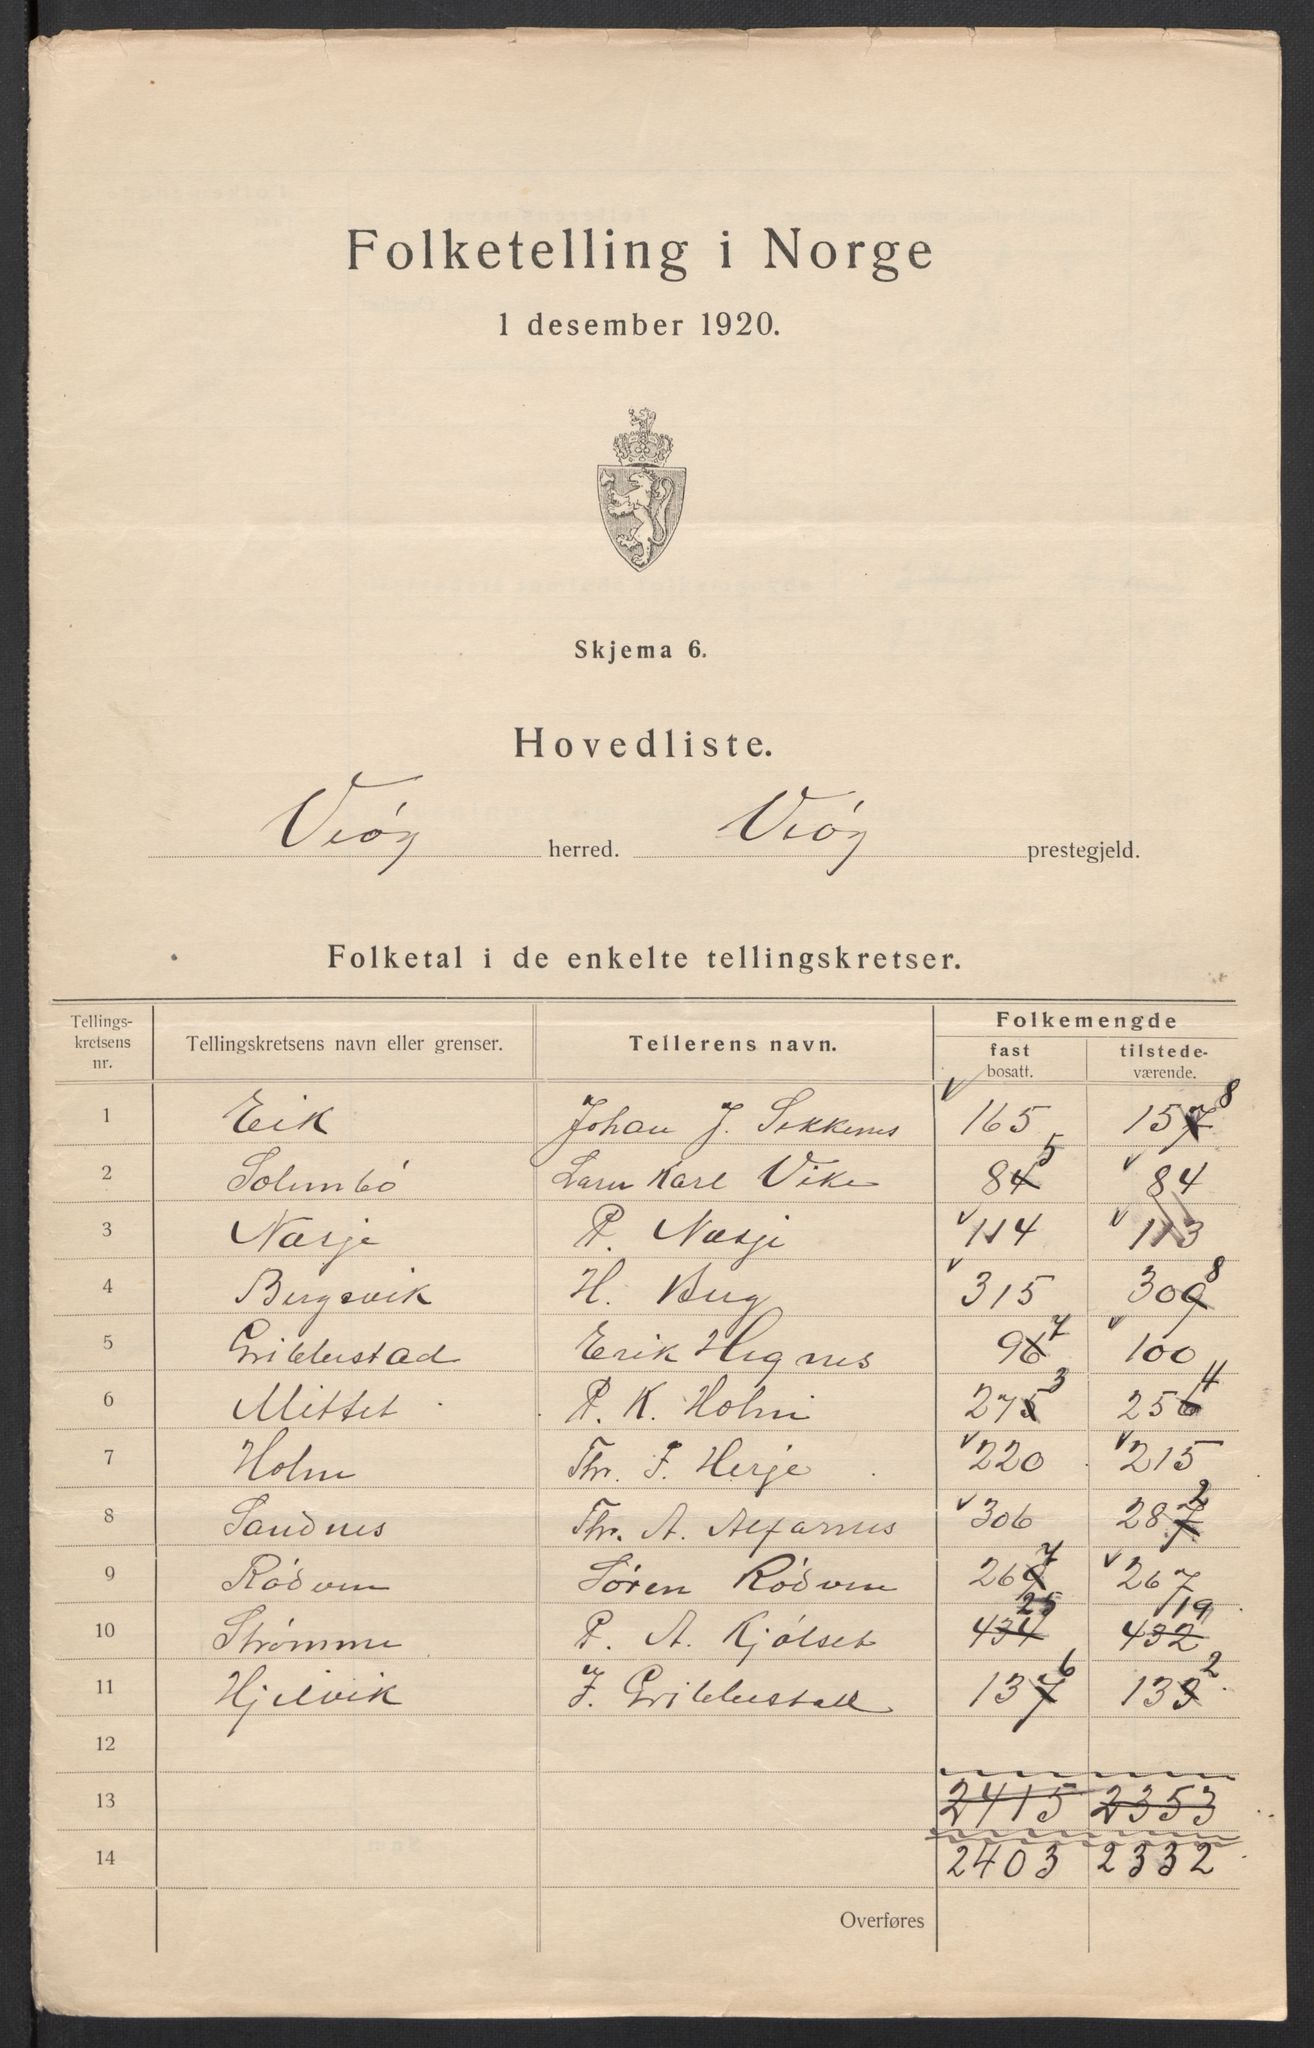 Folketelling i Norge
1 desember 1920.
Skjema 6.
Hovedliste.
Veøy herred. Veøy prestegjeld.
Folketal i de enkelte tellingskretser.
Tellings-kretsens nr. Tellingskretsens navn eller grenser. Tellerens navn. Folkemengde
fast bosatt. tilstede-værende.
1 Eik Johan J. Sekkenes 165 157 8
2 Solembö Lars Karl Vike 84 5 84
3 Næsje P. Næsje 114 113
4 Bergsvik H. Berg 315 309 8
5 Gribbestad Erik Hegnes 96 7 100
6 Mittet P. K. Holm 275 3 256 4
7 Holm Thr. F. Herje 220 215
8 Sandnes Thr. A. Alfarnes 306 287 2
9 Rödven Sören Rödven 269 7 267
10 Strömme P. A. Kjölset 434 25 432 19
11 Hjelvik J. Gribbestad 137 6 133 2
12
13 2415 2353
14 2403 2332
Overføres